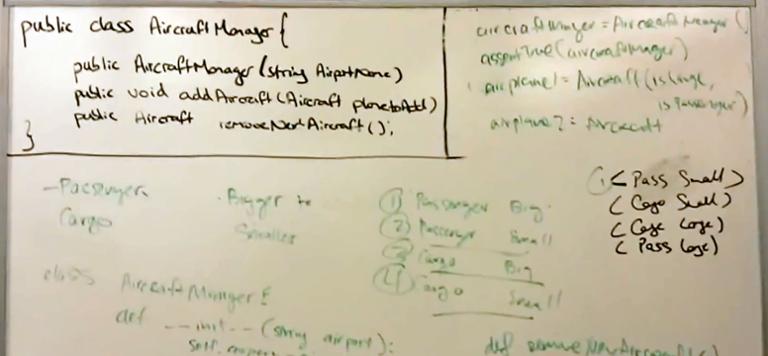 public class AircraftManager {
public AircraftManager (string AirportName)
public void addAircraft (Aircraft planetoAdd)
public Aircraft removeNextAircraft ();
}
assertTrue (aircraftManager)
airplane1 = Aircraft (isLarge,
isPassenger)
airplane2 = Aircraft
- Passenger
Cargo
. Bigger to
Smaller
① Passenger Big
② Passenger Small
③ Cargo Big
④ Cargo Small
① < Pass Small >
( Cargo Small )
( Pass
class AircraftManager {
def __init__ (string airport):
def